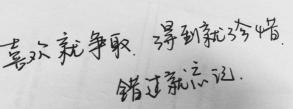 喜欢就争取、得到就珍惜、
错过就忘记.